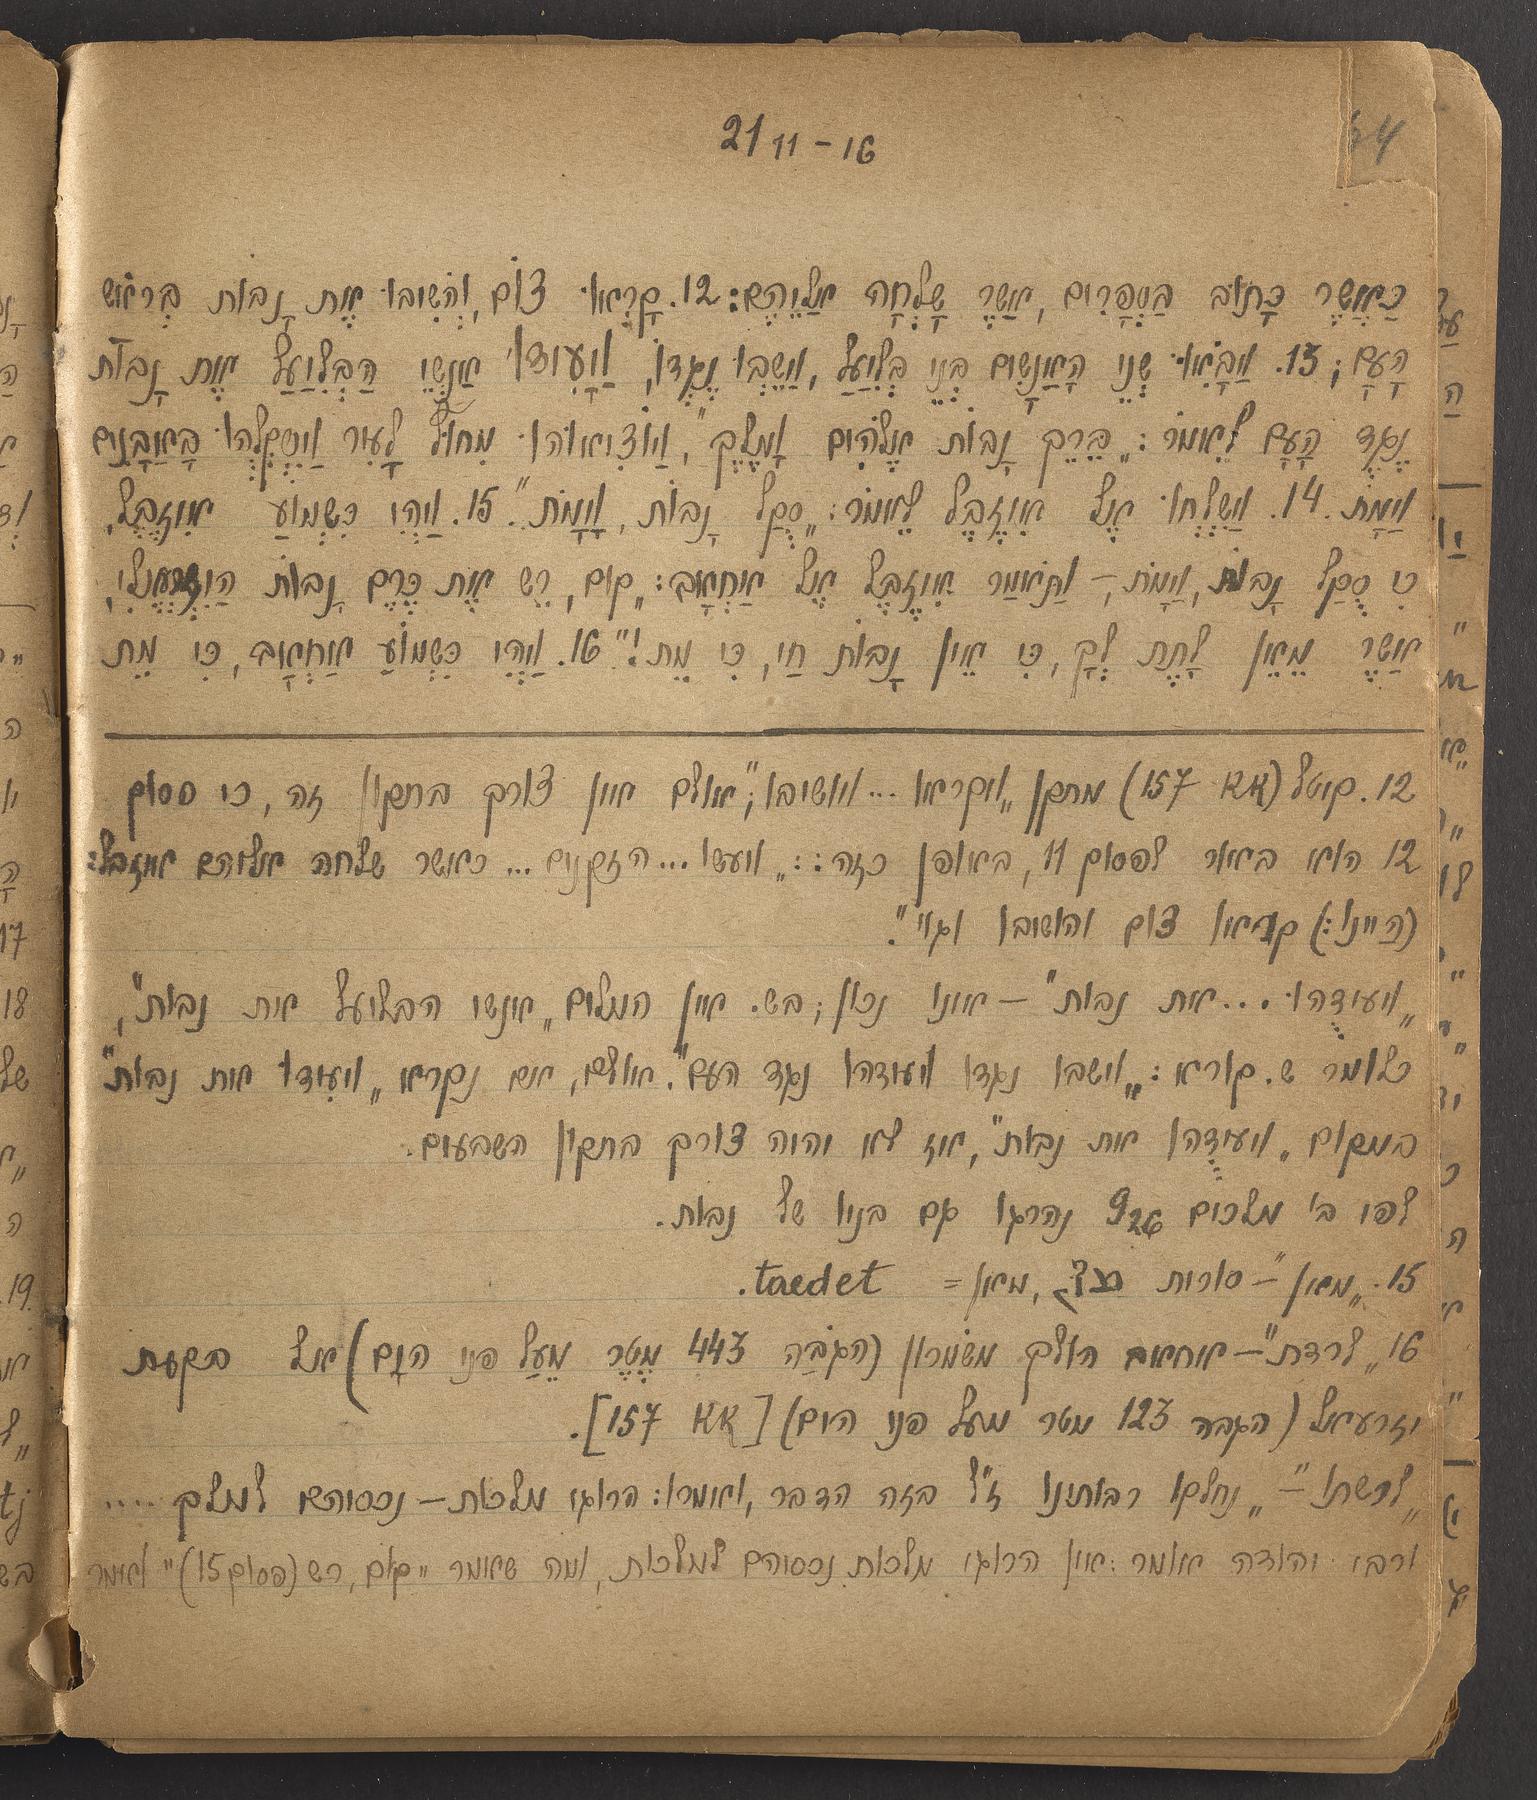 21 11-16
כַּאֲשֶׁר כָּתוּב בַּסְּפָרִים, אֲשֶׁר שָׁלְחָה אֲלֵיהֶם: 12. קָרְאוּ צוֹם, וְהֹשִׁיבוּ אֶת נָבוֹת בְּרֹאשׁ
הָעָם; 13. וַיָּבֹאוּ שְׁנֵי הָאֲנָשִׁים בְּנֵי בְלִיַּעַל, וַיֵּשְׁבוּ נֶגְדּוֹ, וַיְעִדוּ אַנְשֵׁי הַבְּלִיַּעַל אֶת נָבוֹת
נֶגֶד הָעָם לֵאמֹר: „בֵּרֵךְ נָבוֹת אֱלֹהִים וָמֶלֶךְ", וַיּוֹצִיאוּהוּ מִחוּץ לָעִיר וַיִּסְקְלֻהוּ בָאֲבָנִים
וַיָּמֹת. 14. וַיִּשְׁלְחוּ אֶל אִיזֶבֶל לֵאמֹר: „סֻקַּל נָבוֹת, וַיָּמֹת". 15. וַיְהִי כִּשְׁמֹעַ אִיזֶבֶל,
כִּי סֻקַּל נָבוֹת, וַיָּמֹת, – וַתֹּאמֶר אִיזֶבֶל אֶל אַחְאָב: „קוּם, רֵשׁ אֶת כֶּרֶם נָבוֹת הַיִּזְרְעֵאלִי,
אֲשֶׁר מֵאֵן לָתֶת לְךָ, כִּי אֵין נָבוֹת חַי, כִּי מֵת!" 16. וַיְהִי כִּשְׁמֹעַ אַחְאָב, כִּי מֵת
12. קיטל (KK 157) מתקן „ויקראו ... ויושיבו"; אולם אין צורך בתקון זה, כי פסוק
12 הוא באור לפסוק 11, באופן כזה: „ויעשו ... הזקנים ... כאשר שלחה אליהם איזבל:
(היינו:) קראו צום והושיבו וגו'".
„ויעידֻהו ... את נבות" – אינו נכון; בש. אין המלים „אנשי הבליעל את נבות",
כלומר ש. קורא: „וישבו נגדו ויעידהו נגד העם". אולם, אם נקרא „ויעידו את נבות"
במקום „ויעידֻהו את נבות", אז לא יהיה צורך בתקון השבעים.
לפי ב' מלכים 9 26 נהרגו גם בניו של נבות.
15. „מאן" – סורית מאן = taedet.
16 „לרדת" – אחאב הולך משמרון (הגֹּבַהּ 443 מֶטֶר מֵעַל פני הים) אל בקעת
יזרעאל (הגבה 123 מטר מעל פני הים) [KK 157].
„לרשתו" – „נחלקו רבותינו ז"ל בזה הדבר, ואמרו: הרוגי מלכות – נכסיהם למלך ....
ורבי יהודה אומר: אין הרוגי מלכות נכסיהם למלכות, ומה שאומר „קום, רש (פסוק 15)" ואומר